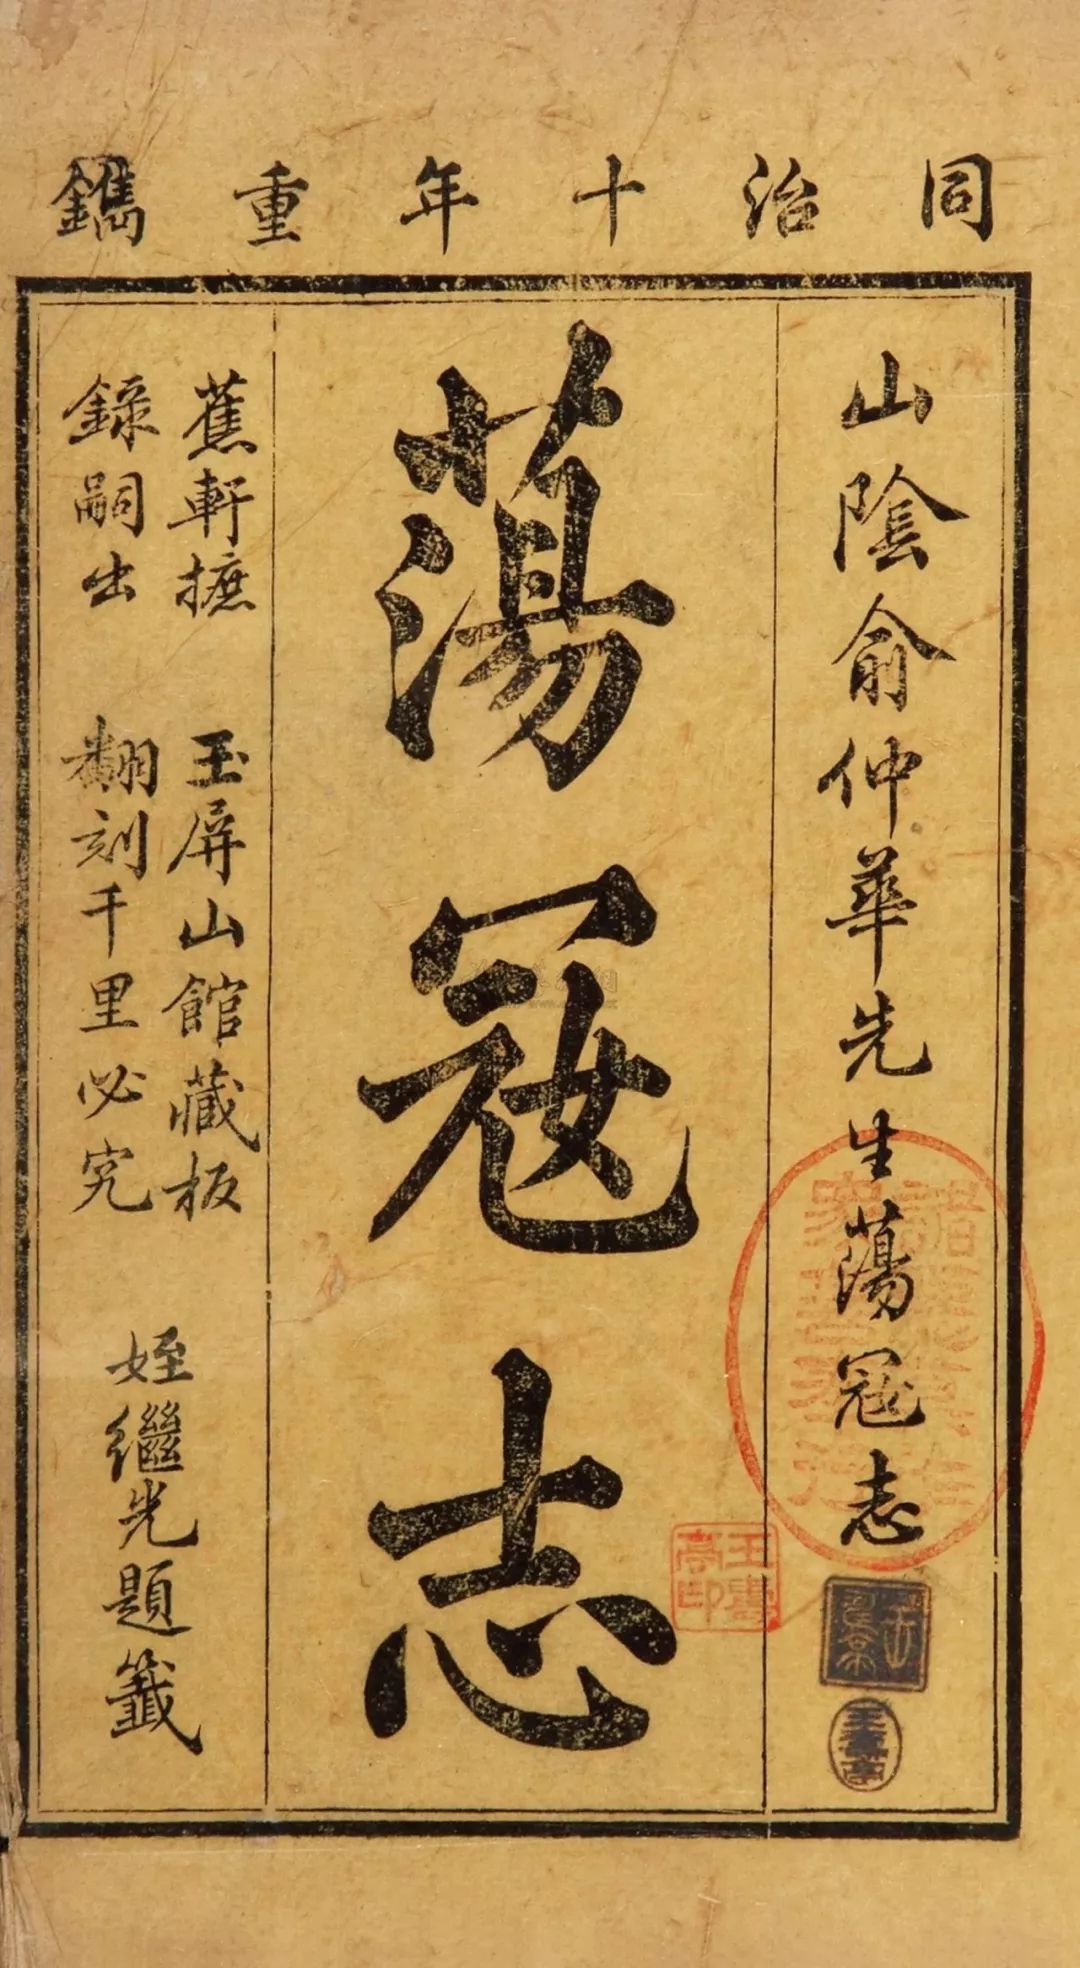 同治十年重鐫
山陰俞仲華先生蕩寇志
蕩寇志
蕉軒摭
錄嗣出
玉屏山館藏板
翻刻千里必究
姪繼光題籤
王壽亭印
王壽亭